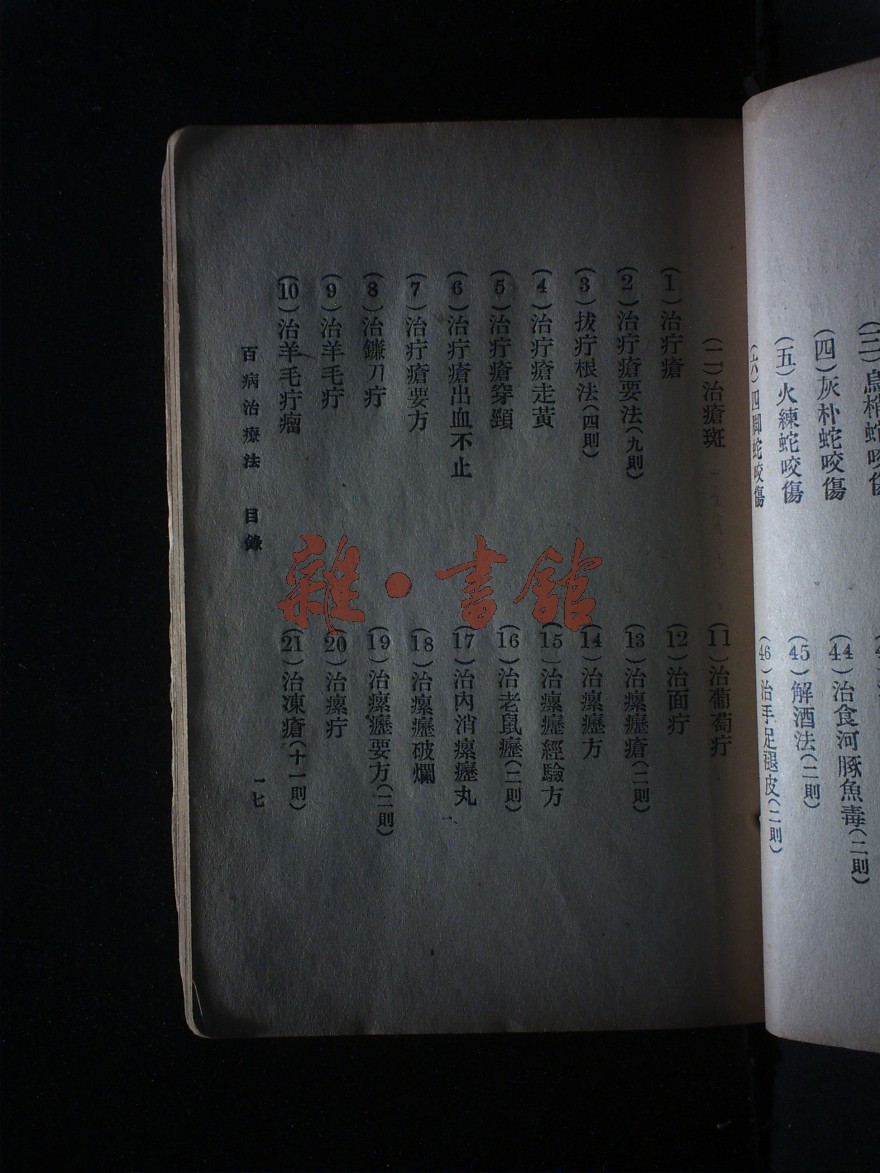 (三)烏梢蛇咬傷
(四)灰朴蛇咬傷
(五)火練蛇咬傷
(六)四脚蛇咬傷
(44)治食河豚魚毒(二則)
(45)解酒法(二則)
(46)治手足褪皮(二則)
(二)治瘡斑
(1)治疔瘡
(2)治疔瘡要法(九則)
(3)拔疔根法(四則)
(4)治疔瘡走黃
(5)治疔瘡穿頸
(6)治疔瘡出血不止
(7)治疔瘡要方
(8)治鐮刀疔
(9)治羊毛疔
(10)治羊毛疔瘤
(11)治葡萄疔
(12)治面疔
(13)治瘰癧瘡(二則)
(14)治瘰癧方
(15)治瘰癧經驗方
(16)治老鼠癧(二則)
(17)治內消瘰癧丸
(18)治瘰癧破爛
(19)治瘰癧要方(二則)
(20)治瘰疔
(21)治凍瘡(十一則)
百病治療法 目錄
一七
雜·書館